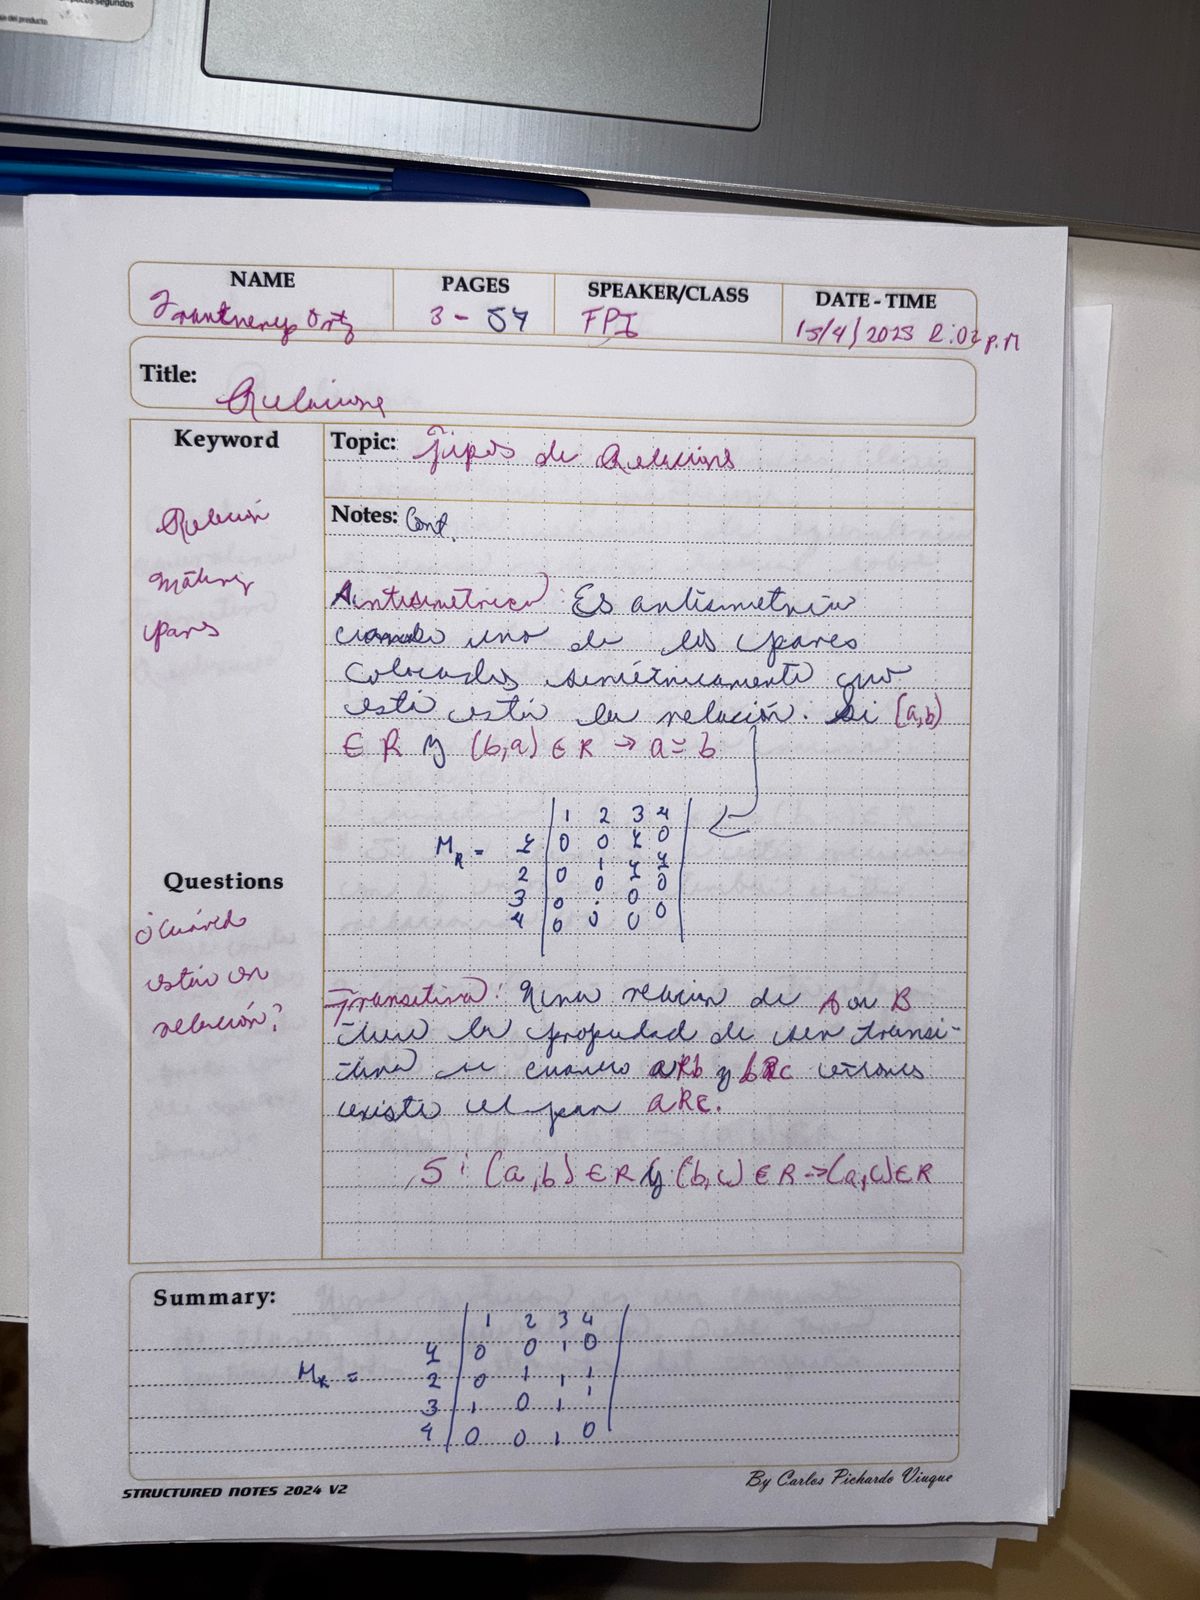 segundos
del producto
NAME
PAGES
SPEAKER/CLASS
DATE - TIME
3 - 54
FPI
15/4/2025 2:02 p.m
Title:
Relacione
Keyword
Topic: Tipos de Relacions
Relación
Notes: Cont.
pars
Antisimétrica: Es antisimetrica
cuando uno de los pares
colocados simétricamente que
esta está la relación. Si (a,b)
∈ R y (b,a) ∈ R → a = b
1 2 3 4
M_R = 1 0 0 1 0
2 0 1 1 1
3 0 0 0 0
4 0 0 0 0
Questions
¿Cuándo
están en
relación?
Transitiva: Una relacion de A en B
tiene la propiedad de ser transi-
tiva si cuando aRb y bRc entonces
existe el par aRc.
Si (a,b) ∈ R y (b,c) ∈ R → (a,c) ∈ R
Summary:
1 2 3 4
M_R = 1 0 0 1 0
2 0 1 1 1
3 1 0 1 1
4 0 0 1 0
STRUCTURED NOTES 2024 V2
By Carlos Pichardo Viuque